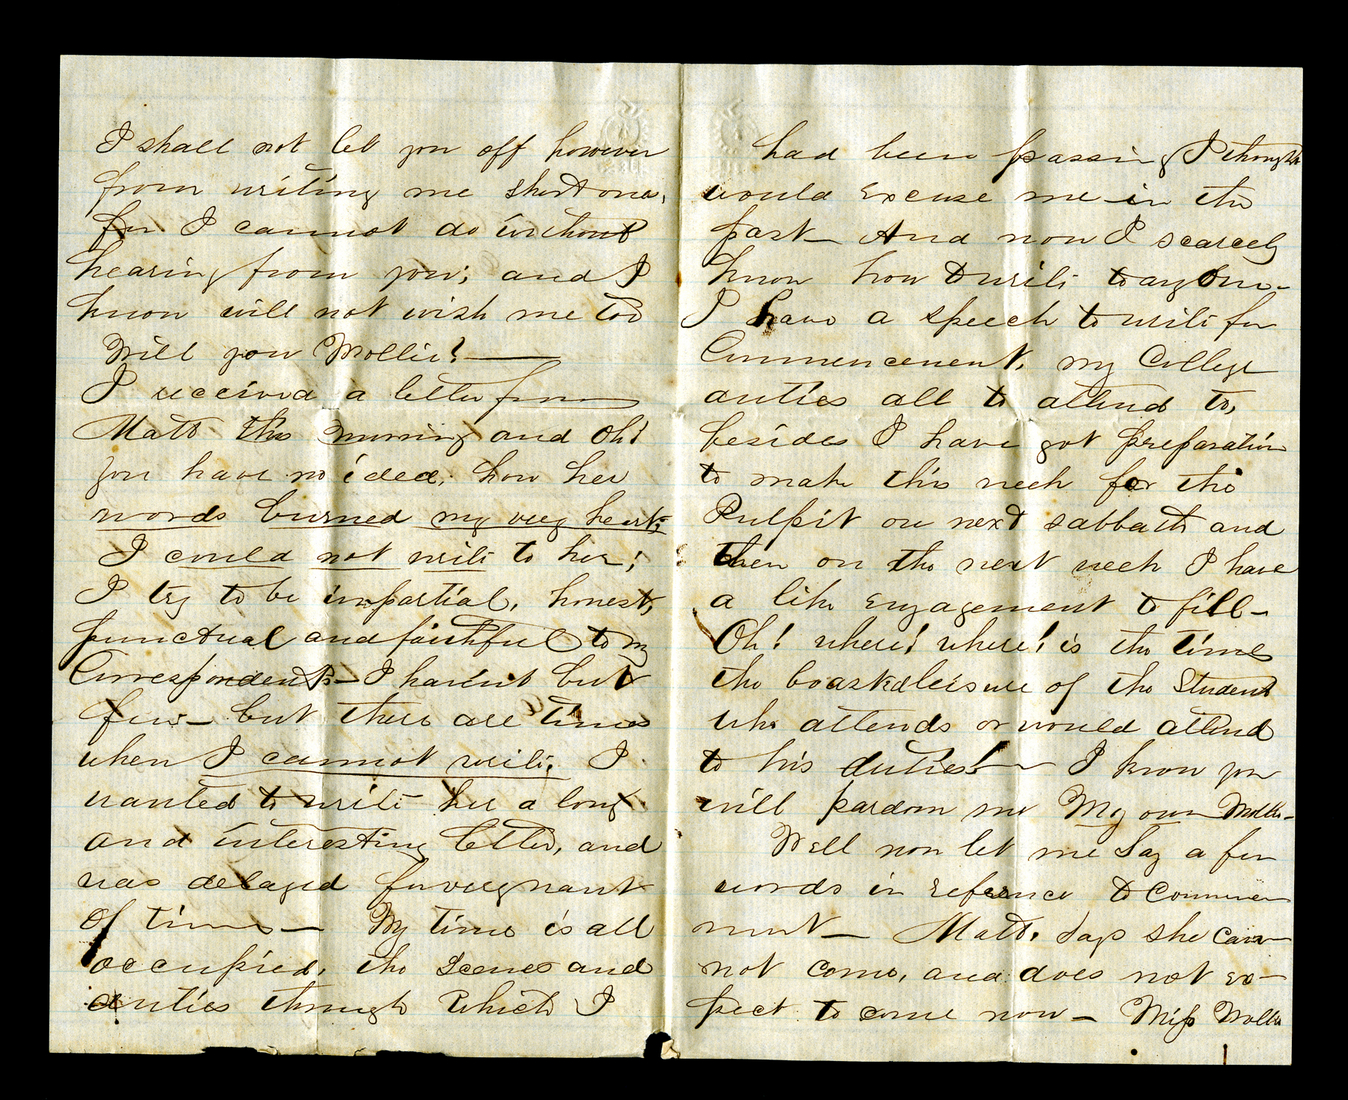 I shall not let you off however
from writing me short ones,
for I cannot do without
hearing from you; and I
know will not wish me too
Will you Mollie? —
I received a letter from
Matt this morning and Oh!
you have no idea, how her
words burned my very heart;
I could not write to her;
I try to be impartial, honest,
punctual and faithful to my
Correspondents — I havent but
few — but there are times
when I cannot write, I
wanted to write her a long
and interesting letter, and
was delayed for very want
of time — My time is all
occupied, the Scenes and
duties through which I
had been passing I thought
would excuse me in the
past — And now I scarcely
know how to write to any one —
I have a speech to write for
Commencement, my College
duties all to attend to,
besides I have got preparation
to make this week for the
Pulpit on next sabbath and
then on the next week I have
a like engagement to fill —
Oh! where! where! is the time
the boasted leisure of the Student
who attends or would attend
to his duties! — I know you
will pardon me My own Mollie —
Well now let me Say a few
words in reference to Commence
ment — Matt, says she can
not come, and does not ex-
pect to come now — Miss Mollie